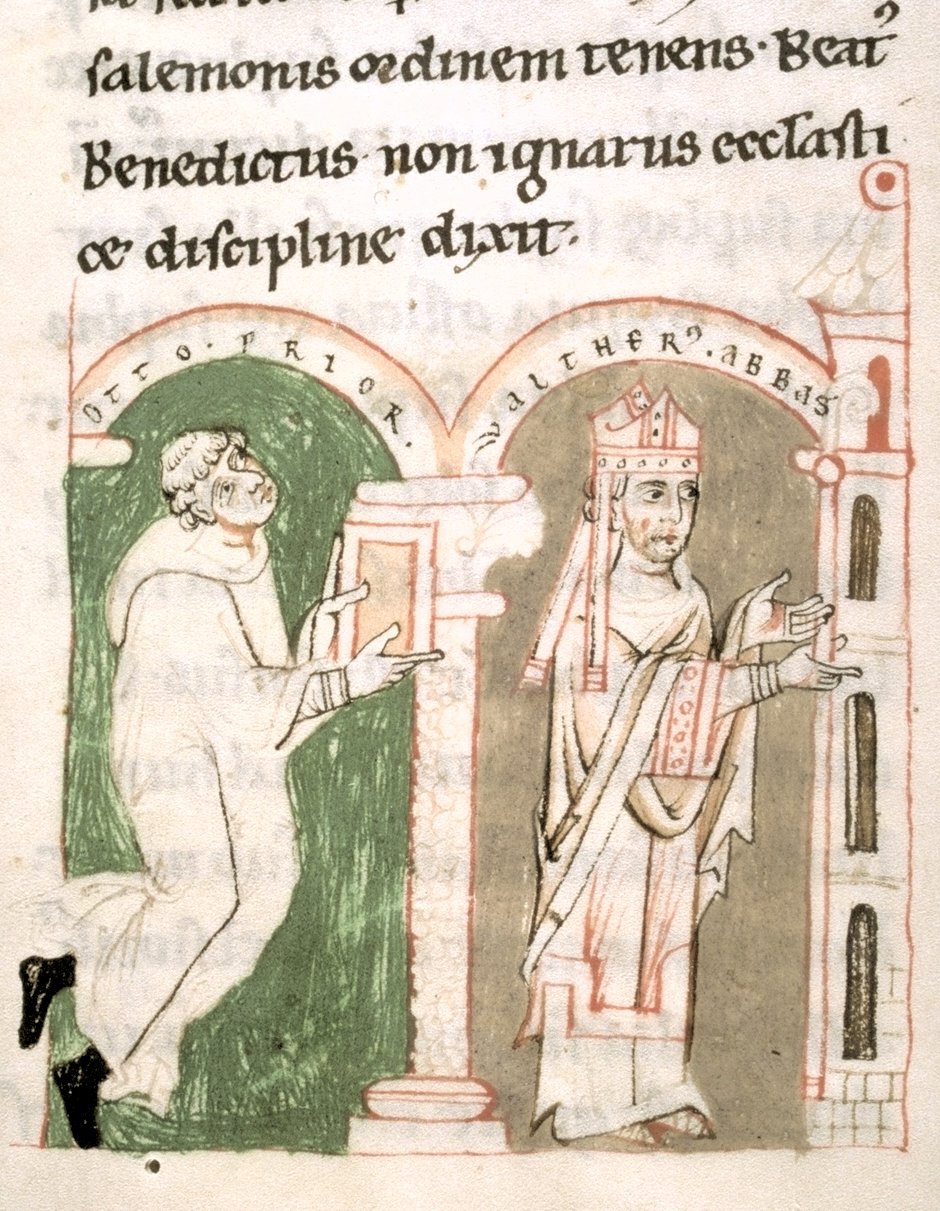 salemonis ordinem tenens · Beatꝰ
Benedictus · non ignarus ecclasti
ce discipline dixit ·
OTTO · PRIOR ·
WALTHERꝰ · ABBAS